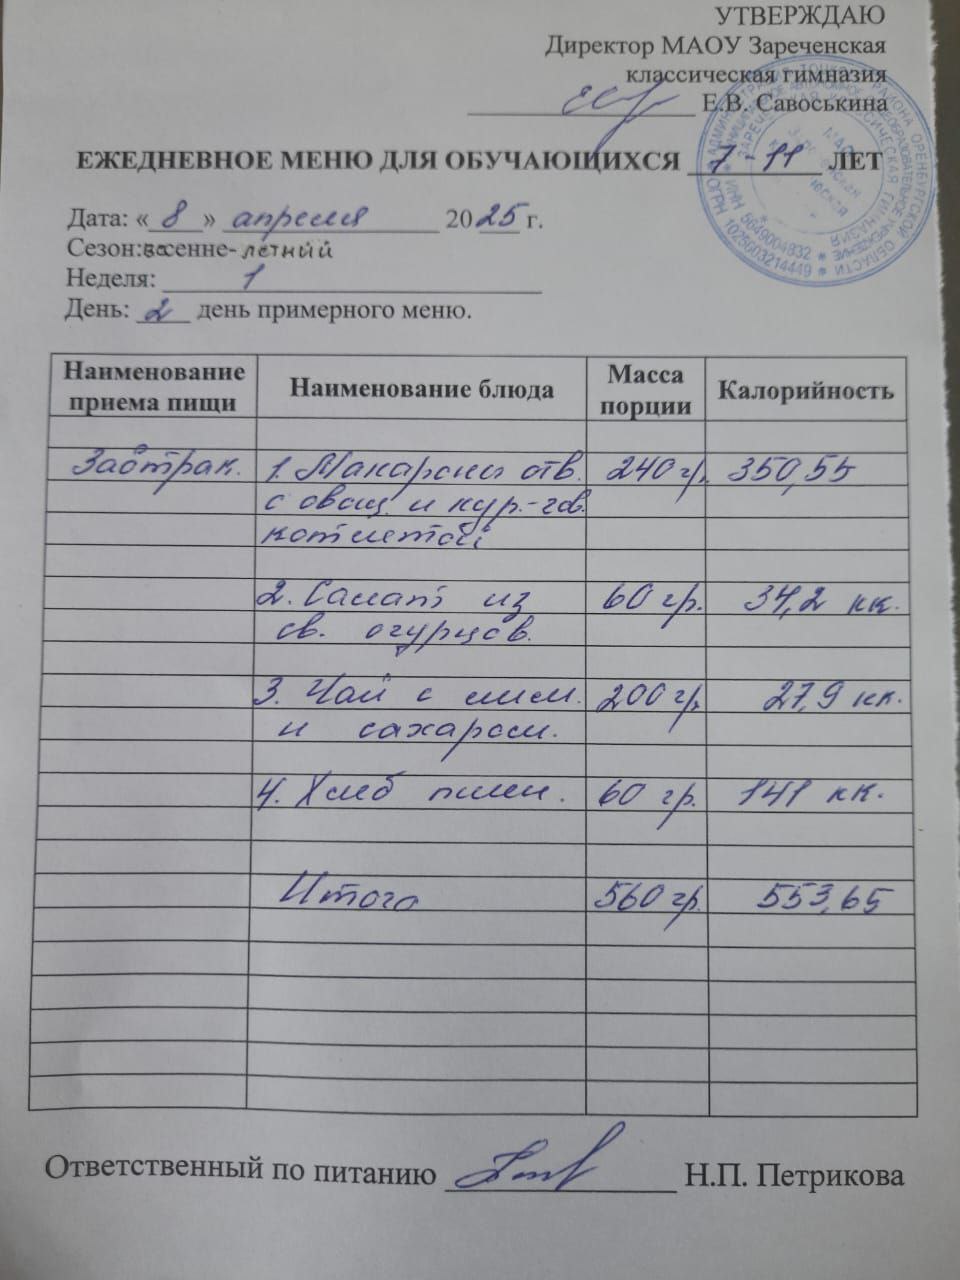 УТВЕРЖДАЮ
Директор МАОУ Зареченская
классическая гимназия
Е.В. Савоськина
ЕЖЕДНЕВНОЕ МЕНЮ ДЛЯ ОБУЧАЮЩИХСЯ 7-11 ЛЕТ
Дата: «8» апреля 2025 г.
Сезон: весенне-летний
Неделя: 1
День: 2 день примерного меню.
Наименование приема пищи Наименование блюда Масса порции Калорийность
Завтрак. 1. Макароны отв. 240 гр. 350,55
с овощ. и кур.-гов.
котлетой
2. Салат из 60 гр. 34,2 кк.
св. огурцов.
3. Чай с лим. 200 гр. 27,9 кк.
и сахаром.
4. Хлеб пшен. 60 гр. 141 кк.
Итого 560 гр. 553,65
Ответственный по питанию Н.П. Петрикова
ИНН 5649004832
ОГРН 1025603214449